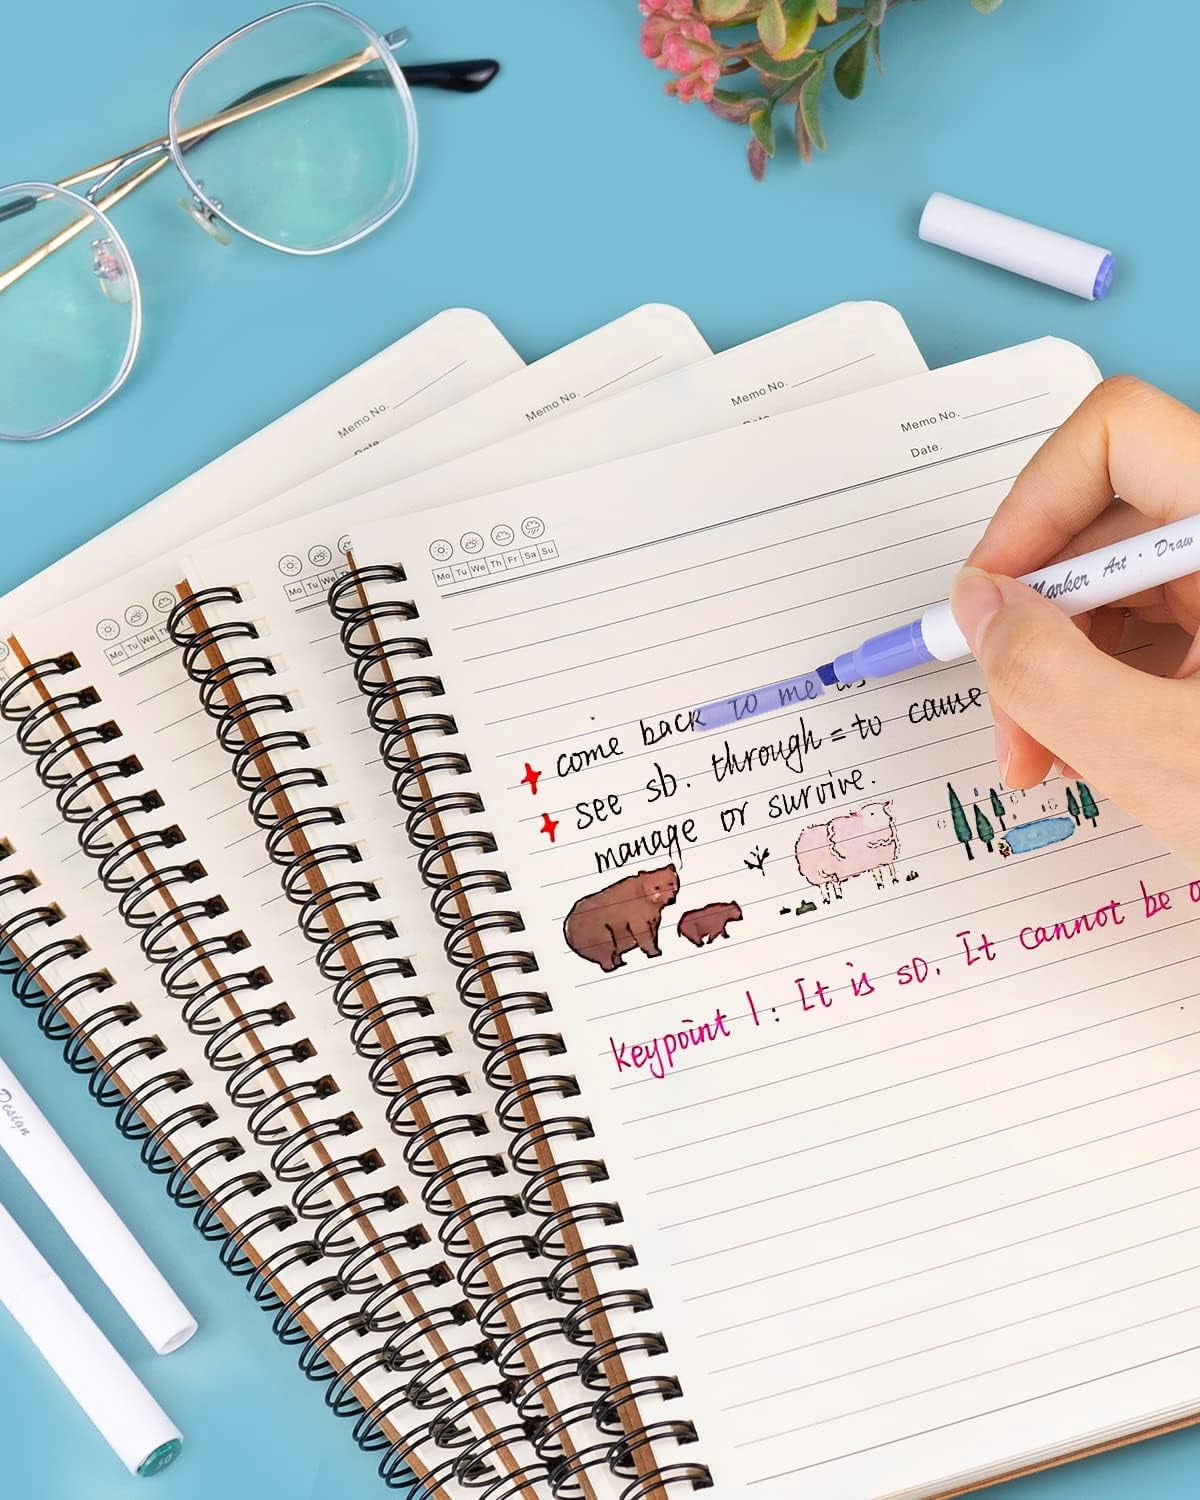 Memo No.
Date.
Memo No.
Memo No.
Memo No.
Date.
Mo Tu We Th Fr Sa Su
Mo Tu We
Mo Tu We Th
Marker Art · Draw
come back to me as
see sb. through = to cause
manage or survive.
keypoint 1: It is so. It cannot be
Design
50